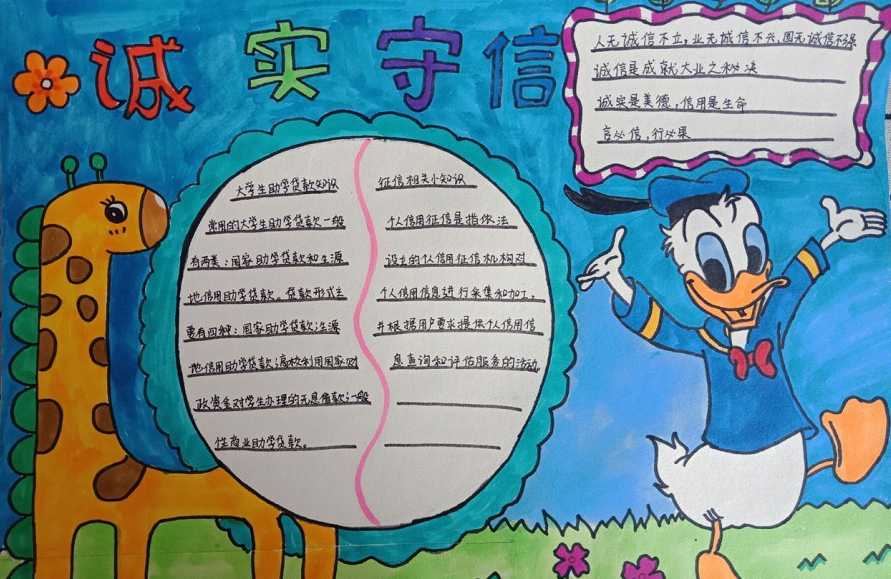 诚实守信
人无诚信不立,业无诚信不兴,国无诚信不强
诚信是成就大业之秘诀
诚实是美德,信用是生命
言必信,行必果
大学生助学贷款知识
常用的大学生助学贷款一般
有两类:国家助学贷款和生源
地信用助学贷款。贷款形式主
要有四种:国家助学贷款;生源
地信用助学贷款;高校利用国家财
政资金对学生办理的无息借款;一般
性商业助学贷款。
征信相关小知识
个人信用征信是指依法
设立的个人信用征信机构对
个人信用信息进行采集和加工。
并根据用户要求提供个人信用信
息查询和评估服务的活动